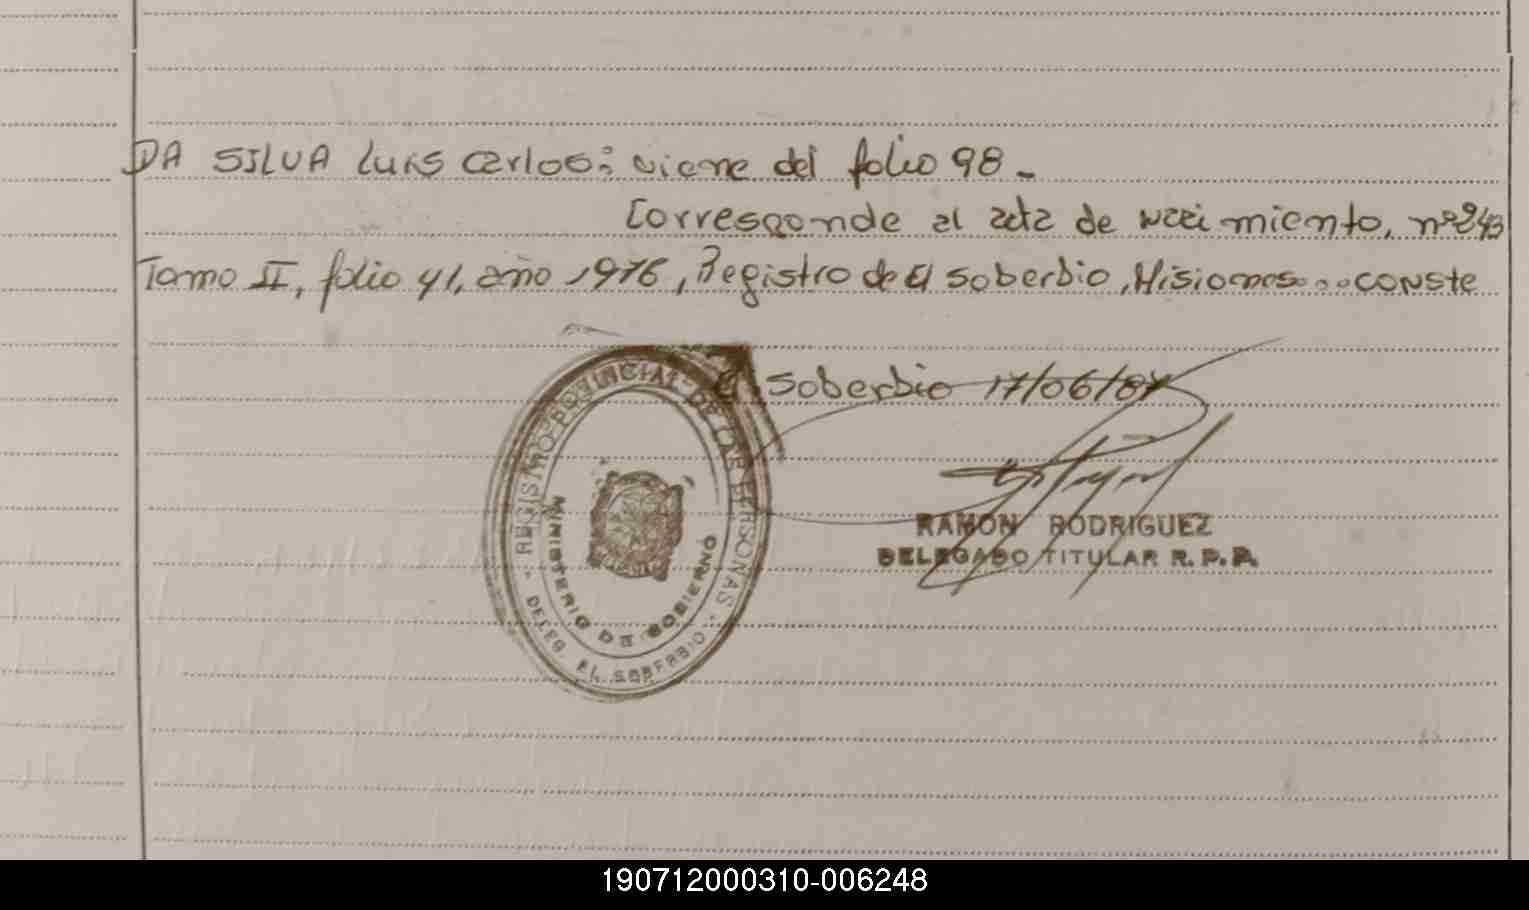 DA SILVA Luis Carlos: viene del folio 98 -
Corresponde al acta de nacimiento, nº 243
Tomo II, folio 41, año 1976, Registro de El Soberbio, Misiones... CONSTE
El Soberbio 17/06/87
REGISTRO PROVINCIAL DE LAS PERSONAS
MINISTERIO DE GOBIERNO
DELEG. EL SOBERBIO
RAMON RODRIGUEZ
DELEGADO TITULAR R. P. P.
190712000310-006248